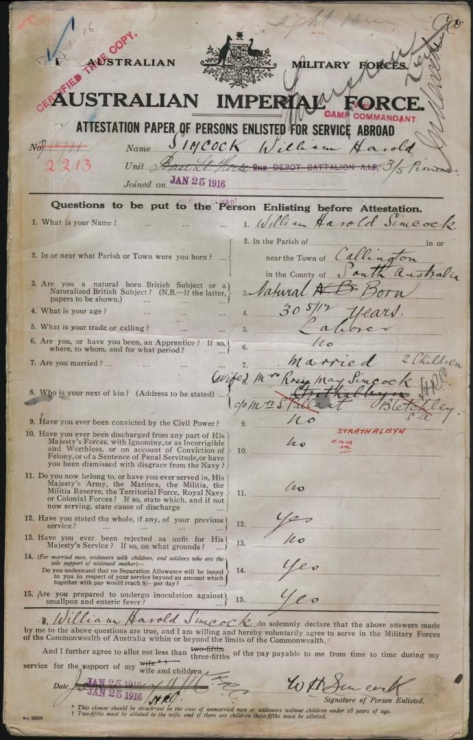 CERTIFIED TRUE COPY.
AUSTRALIAN MILITARY FORCES.
AUSTRALIAN IMPERIAL FORCE.
CAMP COMMANDANT
ATTESTATION PAPER OF PERSONS ENLISTED FOR SERVICE ABROAD
No. 2213 Name Simcock William Harold
Unit 2nd DEPOT BATTALION A.I.F. 3/5 Pioneers
Joined on JAN 25 1916
Questions to be put to the Person Enlisting before Attestation.
1. What is your Name? 1. William Harold Simcock
2. In or near what Parish or Town were you born? 2. In the Parish of in or
near the Town of Callington
in the County of South Australia
3. Are you a natural born British Subject or a Naturalized British Subject? (N.B.—If the latter, papers to be shown.) 3. Natural Born
4. What is your age? 4. 30 5/12 years.
5. What is your trade or calling? 5. Laborer
6. Are you, or have you been, an Apprentice? If so, where, to whom, and for what period? 6. no
7. Are you married? 7. married 2 Children
8. Who is your next of kin? (Address to be stated) 8. (wife) Mrs Rosy May Simcock
Strathalbyn
c/o Mrs S Bletchley
S.A
STRATHALBYN
9. Have you ever been convicted by the Civil Power? 9. no
10. Have you ever been discharged from any part of His Majesty's Forces, with Ignominy, or as Incorrigible and Worthless, or on account of Conviction of Felony, or of a Sentence of Penal Servitude, or have you been dismissed with disgrace from the Navy? 10. no
11. Do you now belong to, or have you ever served in, His Majesty's Army, the Marines, the Militia, the Militia Reserve, the Territorial Force, Royal Navy or Colonial Forces? If so, state which, and if not now serving, state cause of discharge 11. no
12. Have you stated the whole, if any, of your previous service? 12. yes
13. Have you ever been rejected as unfit for His Majesty's Service? If so, on what grounds? 13. no
14. (For married men, widowers with children, and soldiers who are the sole support of widowed mother)—
Do you understand that no Separation Allowance will be issued to you in respect of your service beyond an amount which together with pay would reach 8/- per day? 14. yes
15. Are you prepared to undergo inoculation against smallpox and enteric fever? 15. yes
I, William Harold Simcock do solemnly declare that the above answers made
by me to the above questions are true, and I am willing and hereby voluntarily agree to serve in the Military Forces
of the Commonwealth of Australia within or beyond the limits of the Commonwealth.
And I further agree to allot not less than two-fifths three-fifths of the pay payable to me from time to time during my
service for the support of my wife wife and children
Date JAN 25 1916
JAN 25 1916
W H Simcock
Signature of Person Enlisted.
* This clause should be struck out in the case of unmarried men or widowers without children under 18 years of age.
† Two-fifths must be allotted to the wife, and if there are children three-fifths must be allotted.